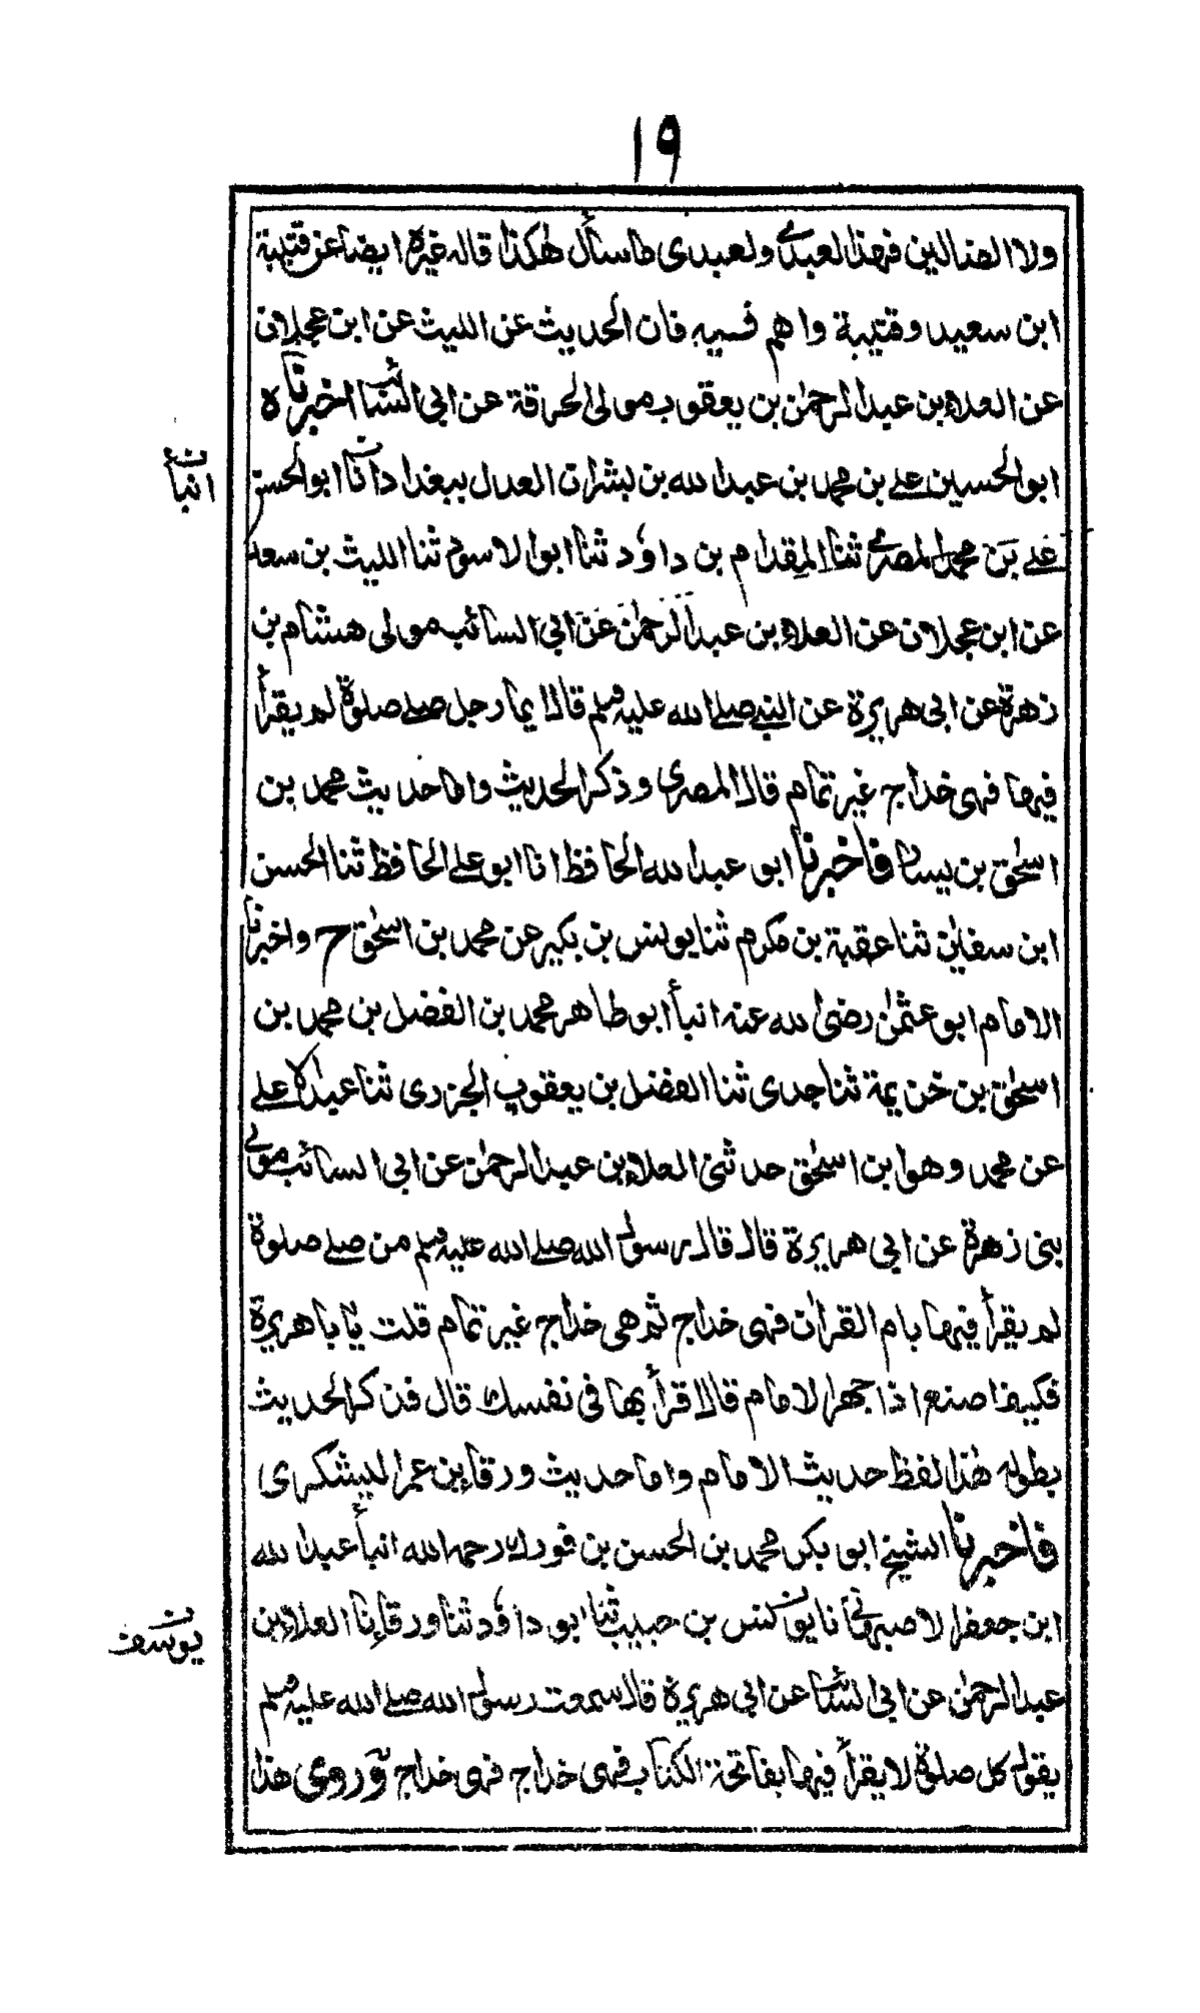 ١٩
ولا الضالين فهذا لعبدى ولعبدى ما سأل هكذا قاله غيره ايضا عن قتيبة
ابن سعيد وقتيبة واهم فيه فان الحديث عن الليث عن ابن عجلان
عن العلاء بن عبد الرحمن بن يعقوب مولى الحرقة عن ابى السائب اخبرناه
ابو الحسين على بن محمد بن عبد الله بن بشران العدل ببغداد انا ابو الحسن
انبأ
على بن محمد المصرى ثنا المقدام بن داود ثنا ابو الاسود ثنا الليث بن سعد
عن ابن عجلان عن العلاء بن عبد الرحمن عن ابى السائب مولى هشام بن
زهرة عن ابى هريرة عن النبى صلى الله عليه وسلم قال ايما رجل صلى صلوة لم يقرأ
فيها فهى خداج غير تمام قال المصرى وذكر الحديث واما حديث محمد بن
اسحق بن يسار فاخبرنا ابو عبد الله الحافظ انا ابو على الحافظ ثنا الحسن
ابن سفيان ثنا عقبة بن مكرم ثنا يونس بن بكير عن محمد بن اسحق ح واخبرنا
الامام ابو عثمن رضى الله عنه انبأ ابو طاهر محمد بن الفضل بن محمد بن
اسحق بن خزيمة ثنا جدى ثنا الفضل بن يعقوب الجزرى ثنا عبد الاعلى
عن محمد وهو ابن اسحق حدثنى العلاء بن عبد الرحمن عن ابى السائب مولى
بنى زهرة عن ابى هريرة قال قال رسول الله صلى الله عليه وسلم من صلى صلوة
لم يقرأ فيها بام القران فهى خداج ثم هى خداج غير تمام قلت يا با هريرة
فكيف اصنع اذا جهر الامام قال اقرأ بها فى نفسك قال فذكر الحديث
بطوله هذا لفظ حديث الامام واما حديث ورقاء بن عمر اليشكرى
فاخبرنا الشيخ ابو بكر محمد بن الحسن بن فورك رحمه الله انبأ عبد الله
ابن جعفر الاصبهانى نا يونس بن حبيب ثنا ابو داود ثنا ورقاء نا العلاء بن
يوسف
عبد الرحمن عن ابى السائب عن ابى هريرة قال سمعت رسول الله صلى الله عليه وسلم
يقول كل صلوة لا يقرأ فيها بفاتحة الكتاب فهى خداج فهى خداج وروى هذا